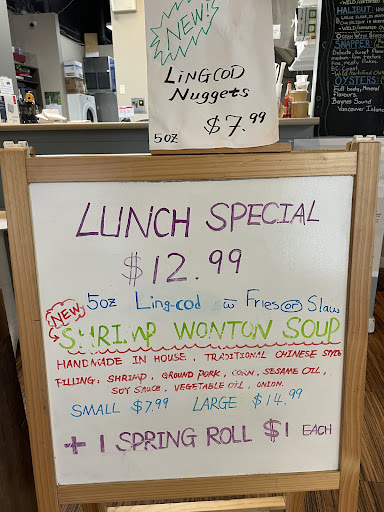 NEW!
LiNGCOD
Nuggets
5oz $7.99
HALIBUT
SNAPPER
OYSTERS
Full body, Mineral
flavours.
Baynes Sound
Vancouver Island
LUNCH SPECIAL
$12.99
5oz Ling-cod w Fries or Slaw
NEW
SHRIMP WONTON SOUP
HANDMADE IN HOUSE, TRADITIONAL CHINESE STYLE
FILLING: SHRIMP, GROUND PORK, CORN, SESAME OIL,
SOY SAUCE, VEGETABLE OIL, ONION.
SMALL $7.99 LARGE $14.99
+ 1 SPRING ROLL $1 EACH